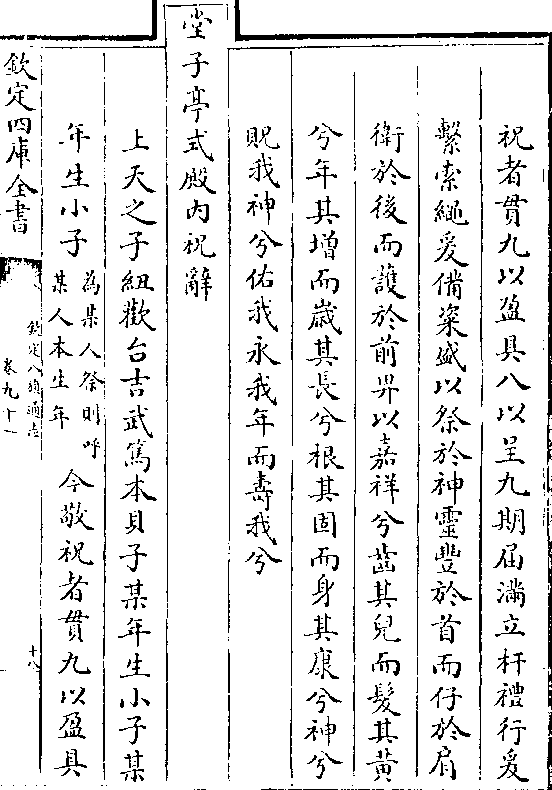 祝者貫九以盈具八以呈九期屆滿立杆禮行爰
繫索繩爰備粢盛以祭於神靈豐於首而仔於肩
衛於後而護於前畀以嘉祥兮齒其兒而髮其黃
兮年其增而歲其長兮根其固而身其康兮神兮
貺我神兮佑我永我年而壽我兮
堂子亭式殿内祝辭
上天之子紐歡台吉武篤本貝子某年生小子某
年生小子
為某人祭則呼
某人本生年
今敬祝者貫九以盈具
欽定四庫全書
欽定八旗通志
卷九十一
十八